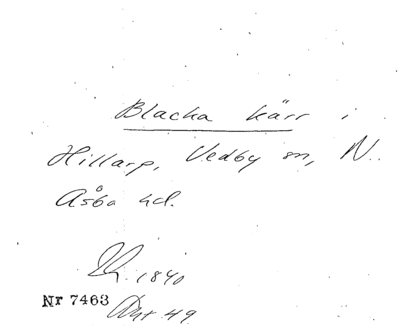 Blacka kärr i
Hillarp, Vedby sn, N.
Åsbo hd.
1840
Nr 7463
Akt 49